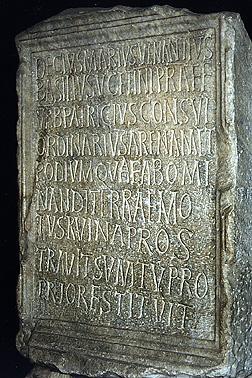 DECIVS MARIVS VENANTIVS
BASILIVS VC ET INL PRAEF
VRB PATRICIVS CONSVL
ORDINARIVS ARENAM ET
PODIVM QVAE ABOMI
NANDI TERRAE MO
TVS RVINA PROS
TRAVIT SVMTV PRO
PRIO RESTITVIT